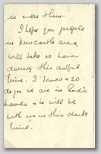 in news then.
I hope you people
in Newcastle area
will take no harm
during this awful
time. I know so
do you we are in God's
hands who will be
with us in this dark
time.